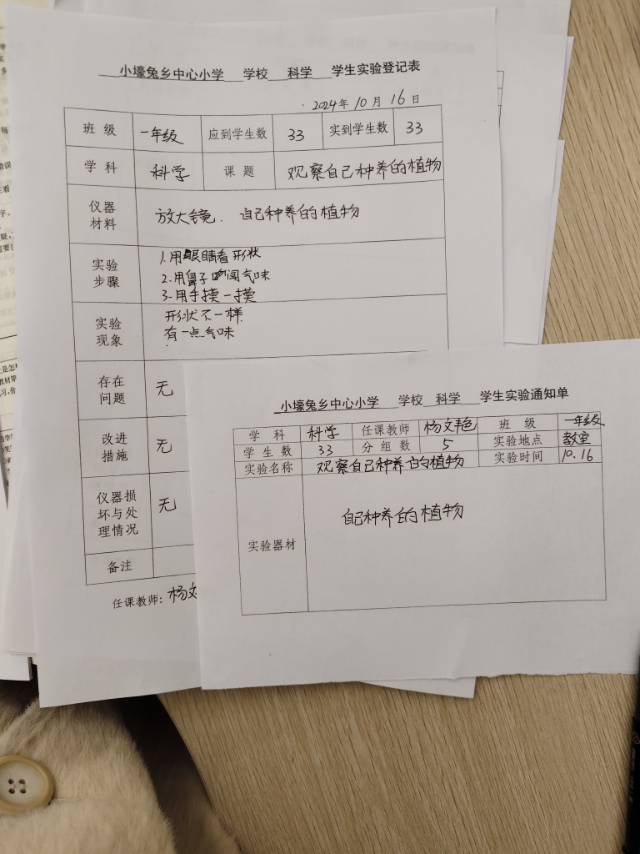 小壕兔乡中心小学 学校 科学 学生实验登记表
2024年10月16日
班级 一年级 应到学生数 33 实到学生数 33
学科 科学 课题 观察自己种养的植物
仪器材料 放大镜. 自己种养的植物
实验步骤
1.用眼睛看形状
2.用鼻子闻气味
3.用手摸一摸
实验现象
形状不一样
有一点气味
存在问题 无
改进措施 无
仪器损坏与处理情况 无
备注
任课教师:杨文
小壕兔乡中心小学 学校 科学 学生实验通知单
学科 科学 任课教师 杨文艳 班级 一年级
学生数 33 分组数 5 实验地点 教室
实验名称 观察自己种养的植物 实验时间 10.16
实验器材 自己种养的植物